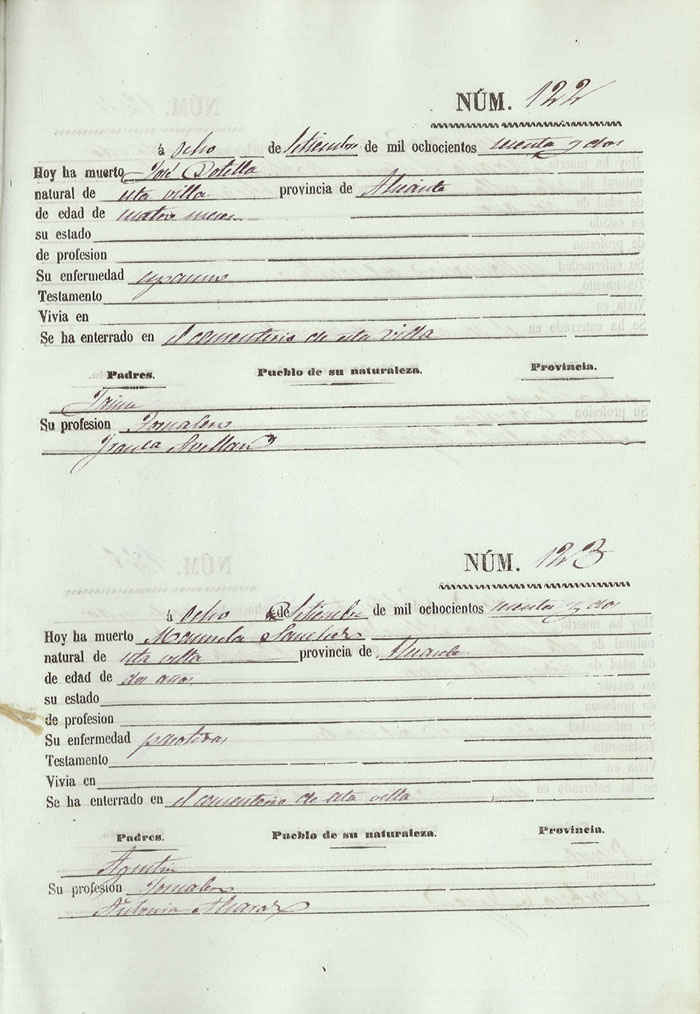 NÚM. 122
á ocho de Setiembre de mil ochocientos y dos
Hoy ha muerto José Botella
natural de esta villa provincia de Alicante
de edad de cuatro meses
su estado
de profesion
Su enfermedad espasmo
Testamento
Vivia en
Se ha enterrado en el cementerio de esta villa
Padres. Pueblo de su naturaleza. Provincia.
Jaime
Su profesion Jornalero
Avellan
NÚM. 123
á Ocho de Setiembre de mil ochocientos y dos
Hoy ha muerto Manuela Sanchez
natural de esta villa provincia de Alicante
de edad de dos años
su estado
de profesion
Su enfermedad
Testamento
Vivia en
Se ha enterrado en el cementerio de esta villa
Padres. Pueblo de su naturaleza. Provincia.
Agustin
Su profesion Jornalero
Antonia Alcaraz